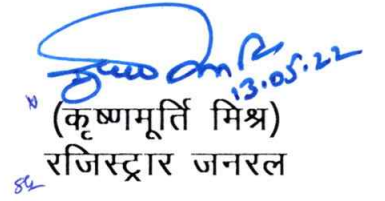 13.05.22
(कृष्णमूर्ति मिश्र)
रजिस्ट्रार जनरल